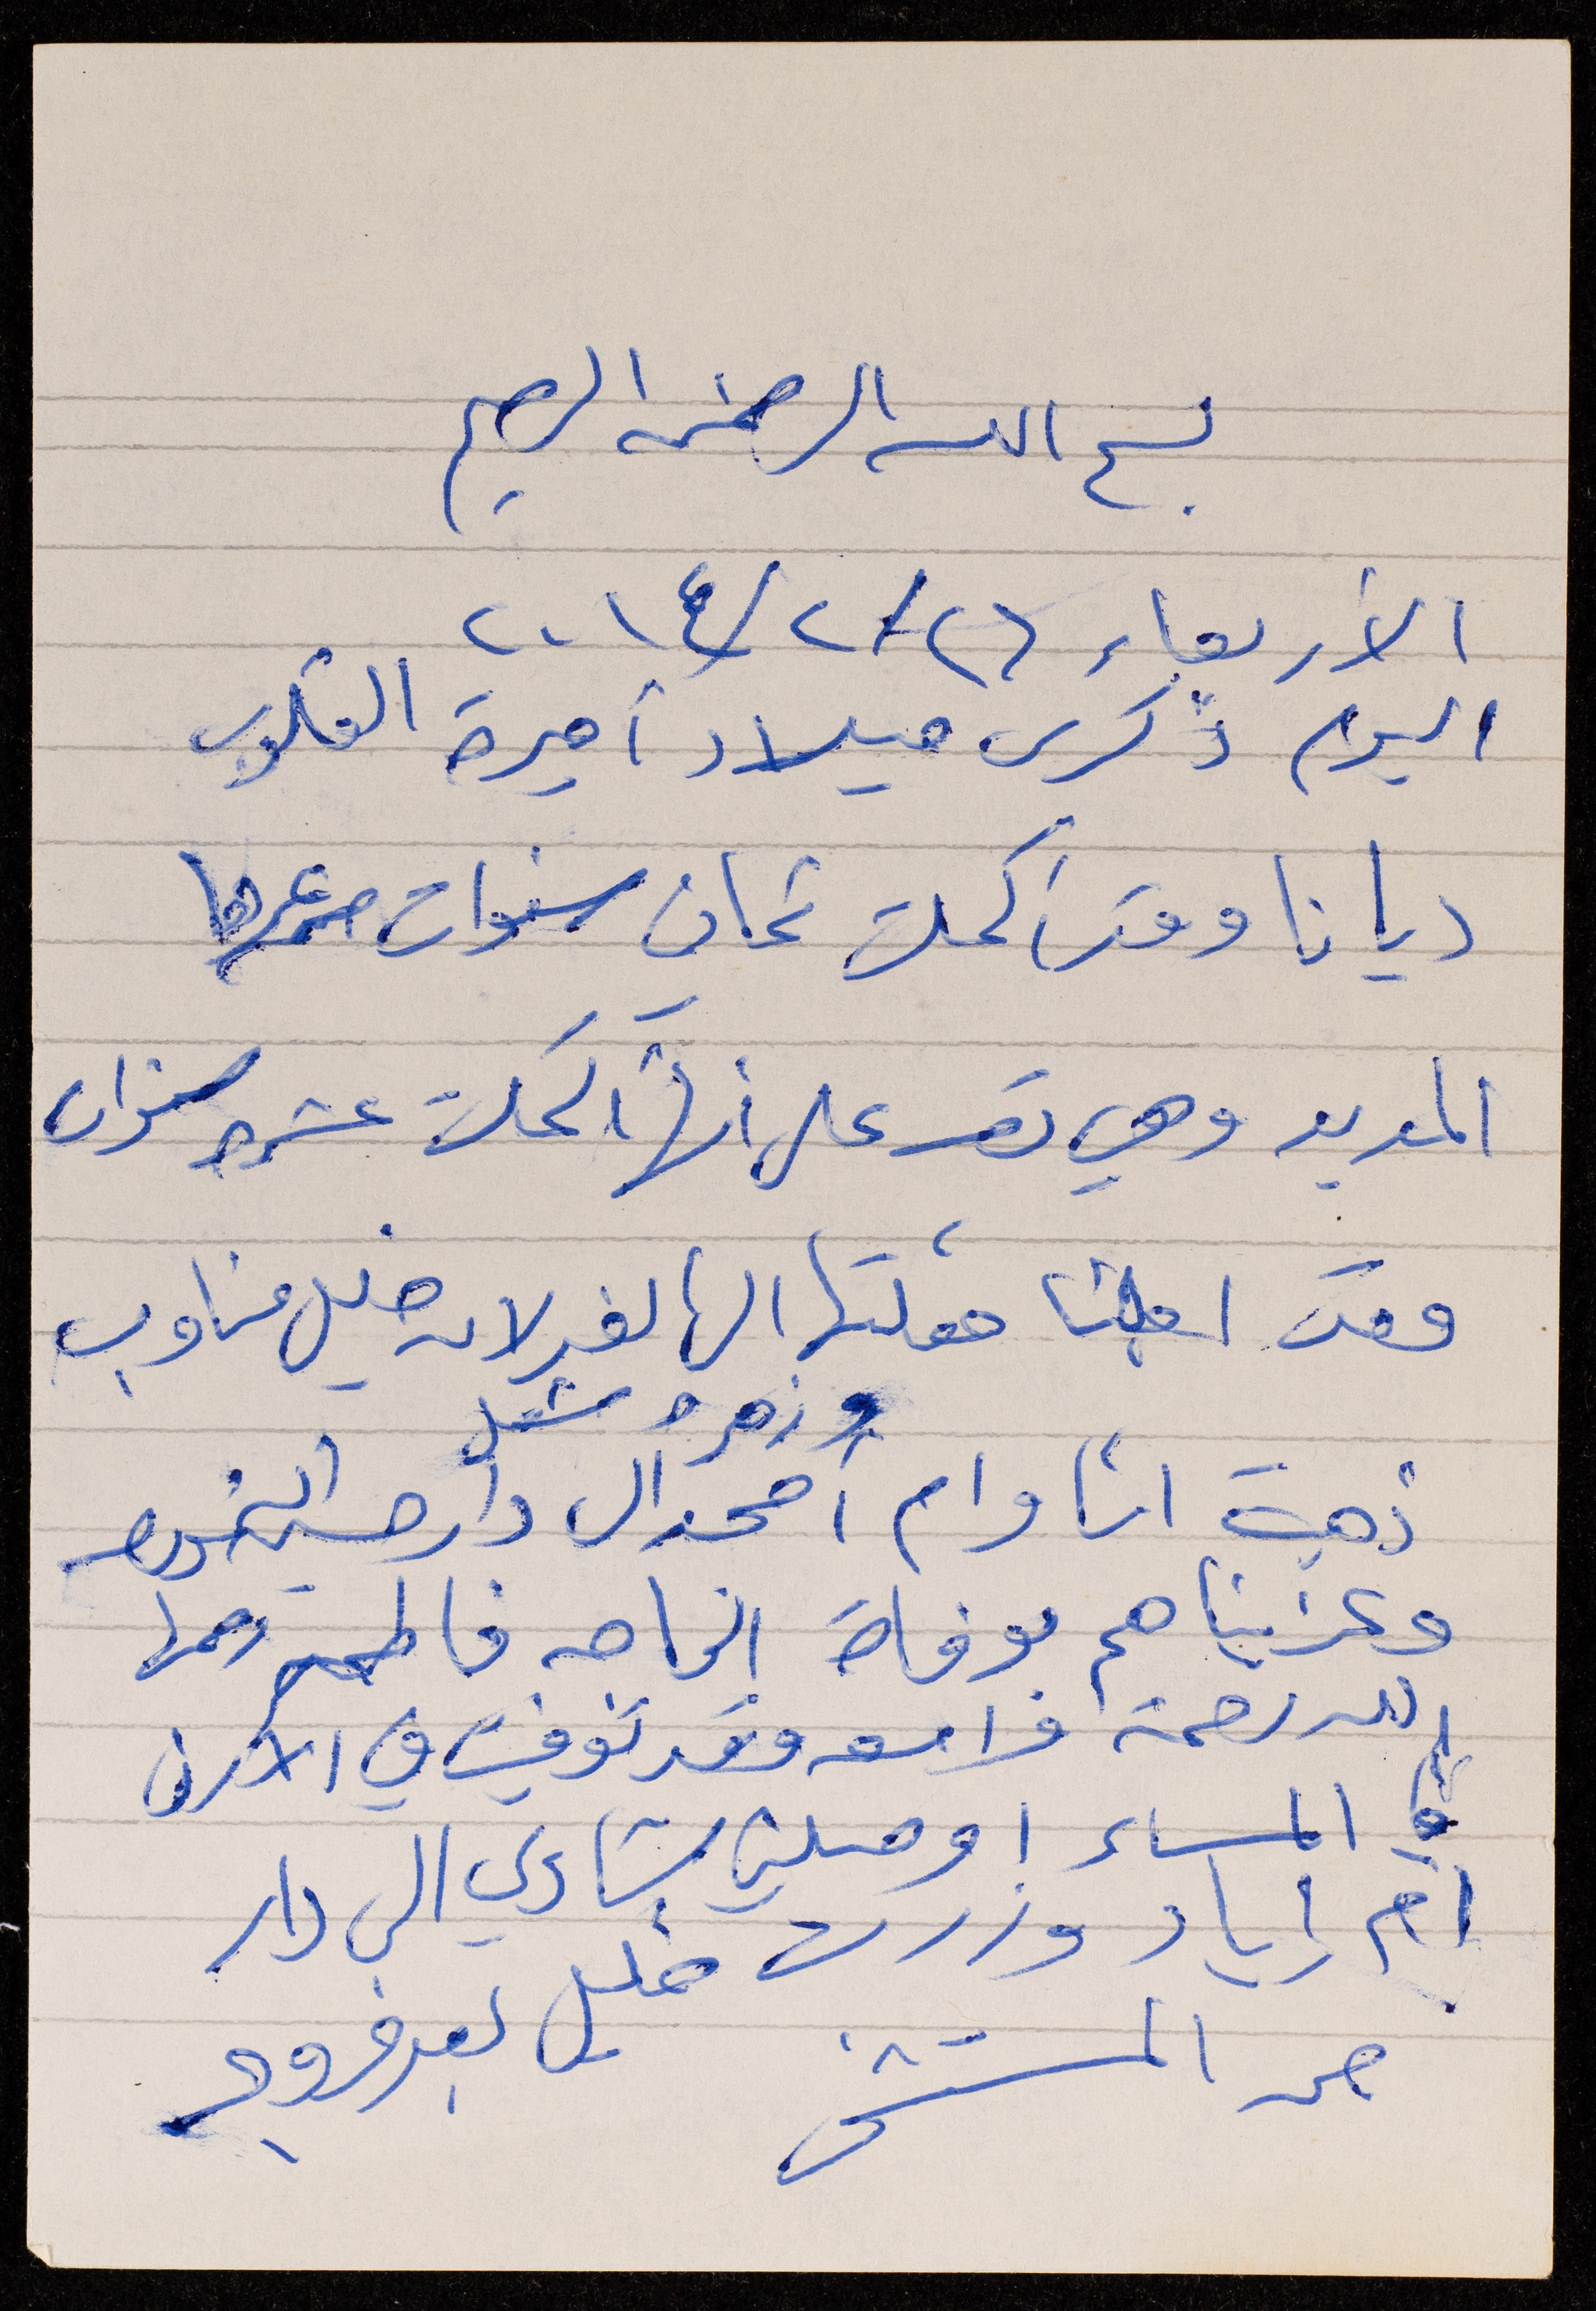 بسم الله الرحمن الرحيم
الأربعاء ٢٦/٢/٢٠١٤
اليوم ذكرى ميلاد أميرة القلوب
ديانا وقد أكملت ثمان سنوات من عمرها
المديد وهي تصر على أنها أكملت عشرة سنوات
وقد اجلنا حفلتها الى الغد لان خليل مناوب
وزهره شغل
ذهبت انا وام أمجد الى دار حسين
وعزيناهم بوفاة الحاجه فاطمه رحمها
الله رحمة واسعه وقد توفيت في الاردن
في المساء اوصلني شادي الى دار
أم اياد وزرت خليل بعد خروجه
من المستشفى